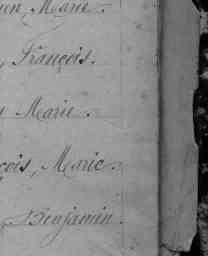 en, Marie.
, François.
Marie.
çois, Marie.
Benjamin.